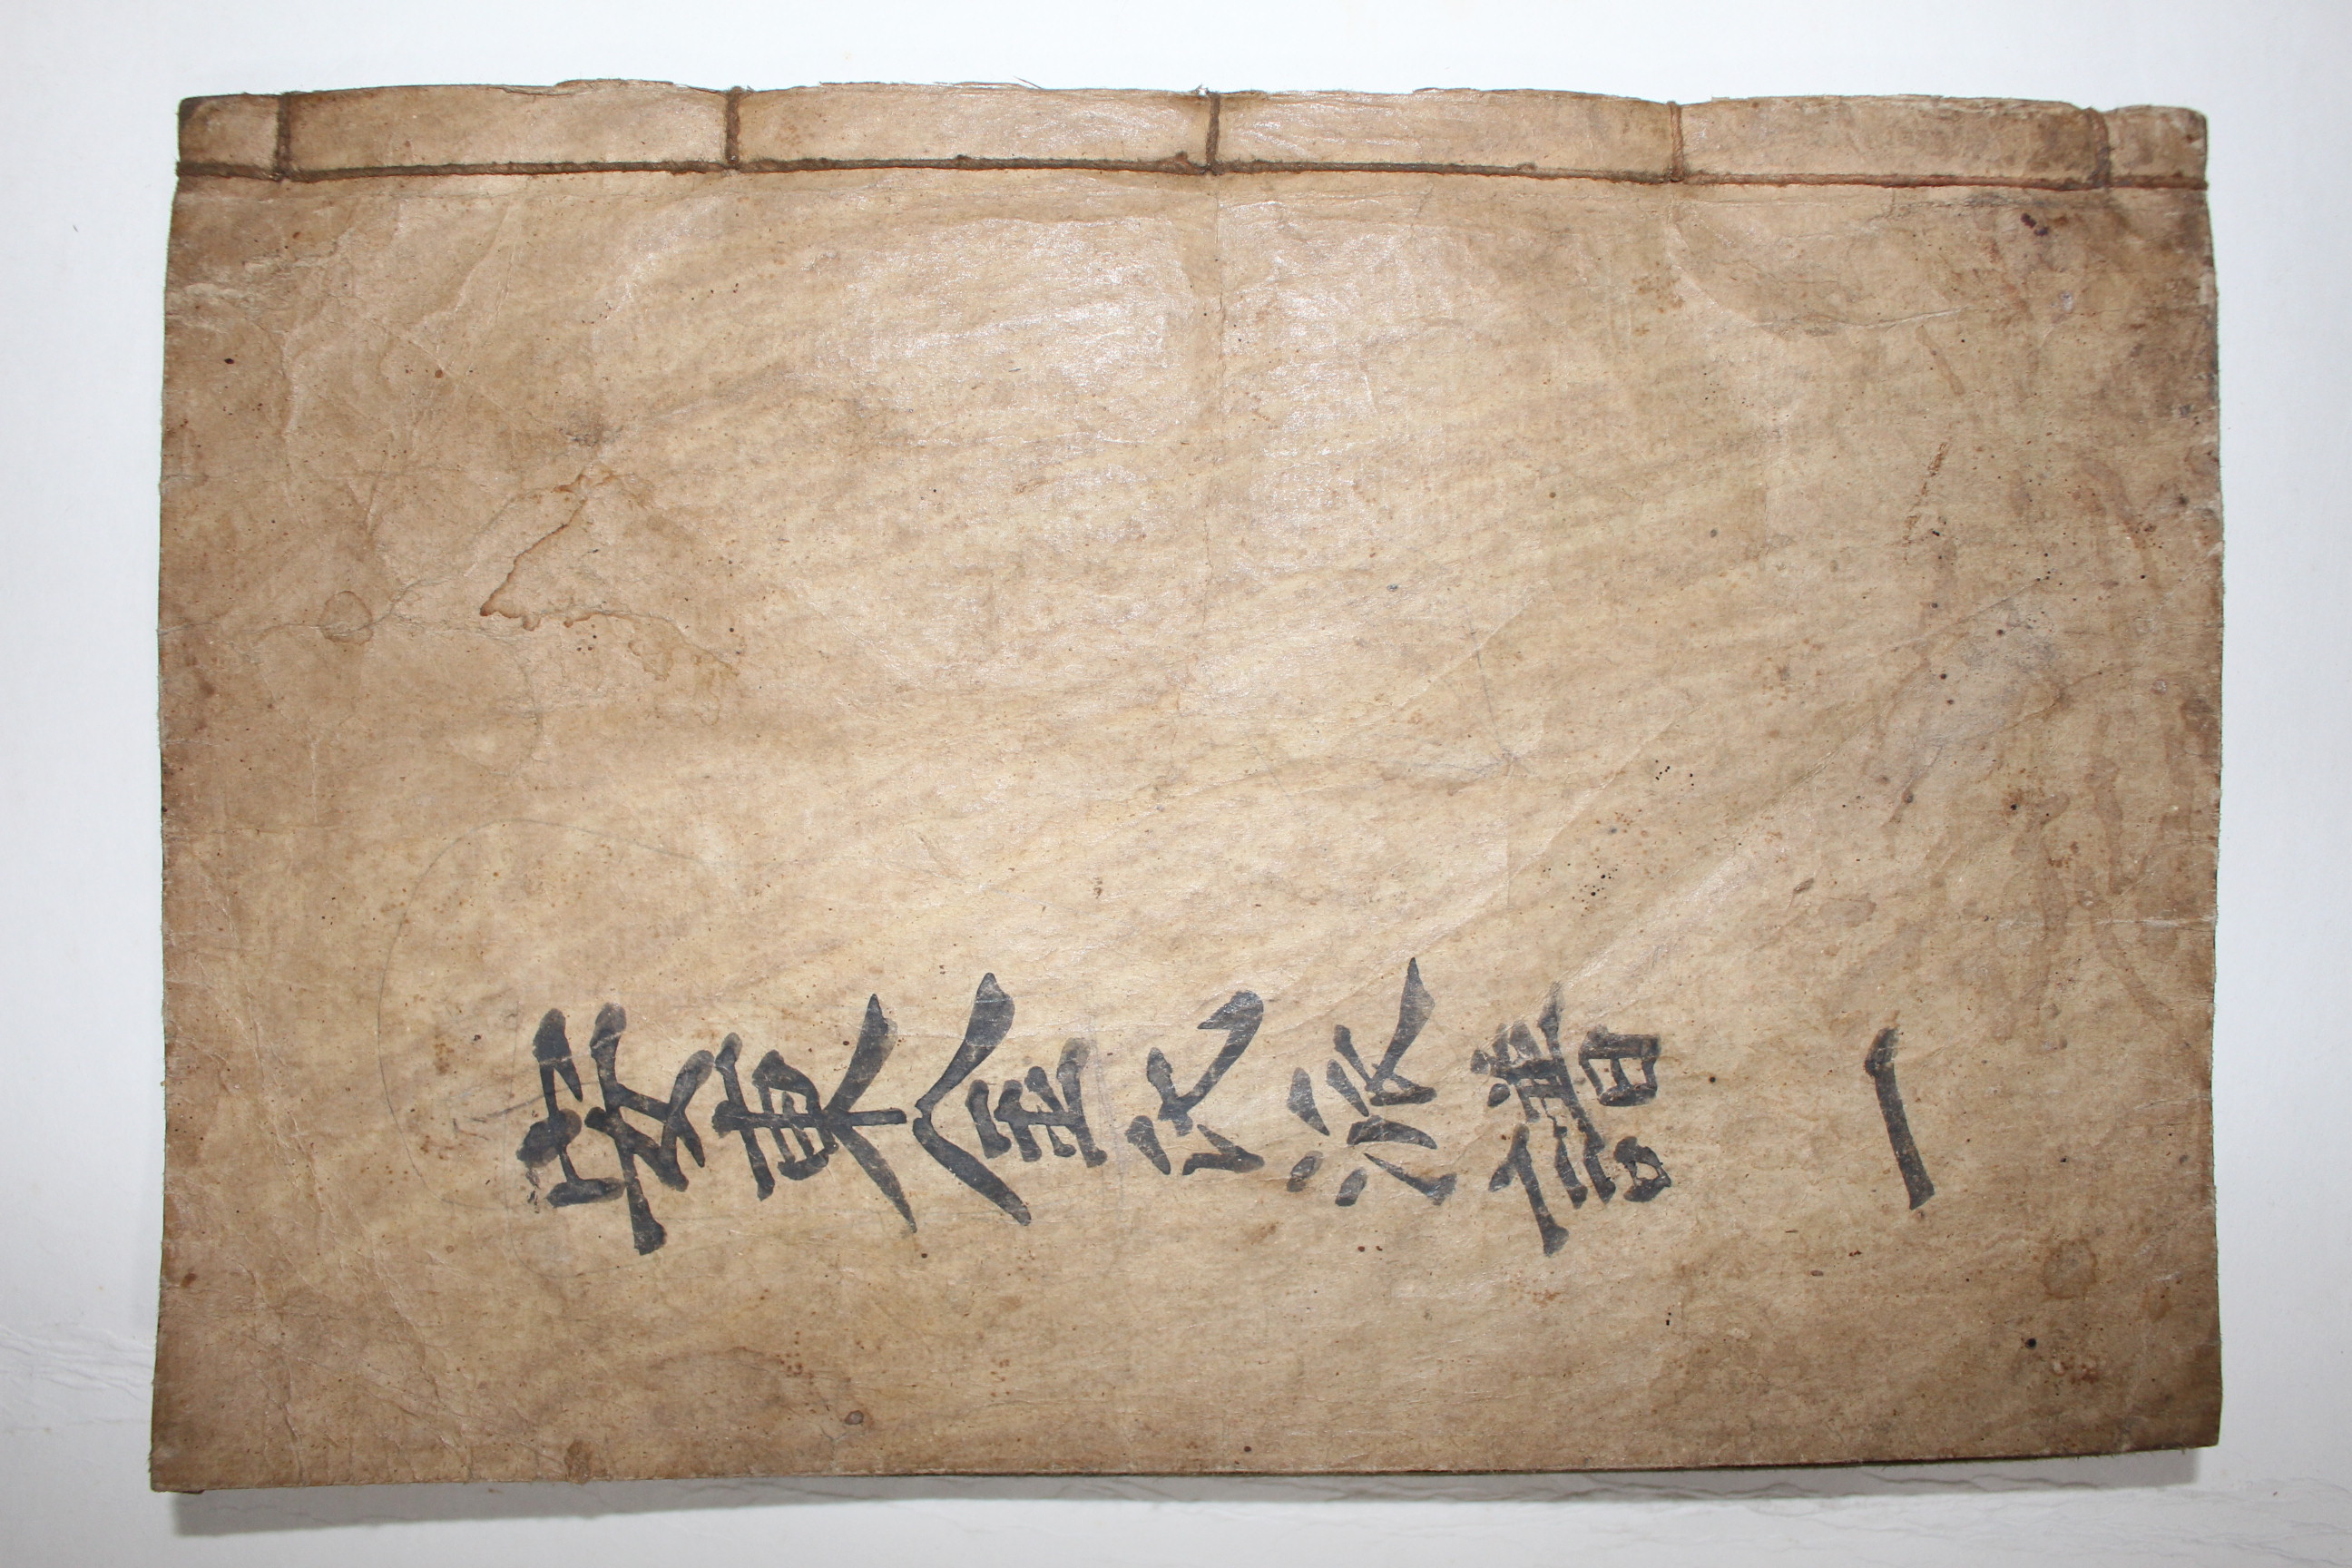 安東金氏派譜 一